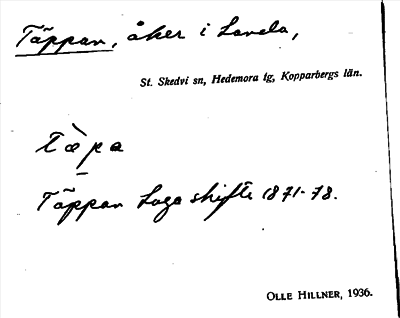 Täppan, åker i Landa,
St. Skedvi sn, Hedemora tg, Kopparbergs län.
tæ̀pa
Täppan Laga skifte 1871-78.
OLLE HILLNER, 1936.